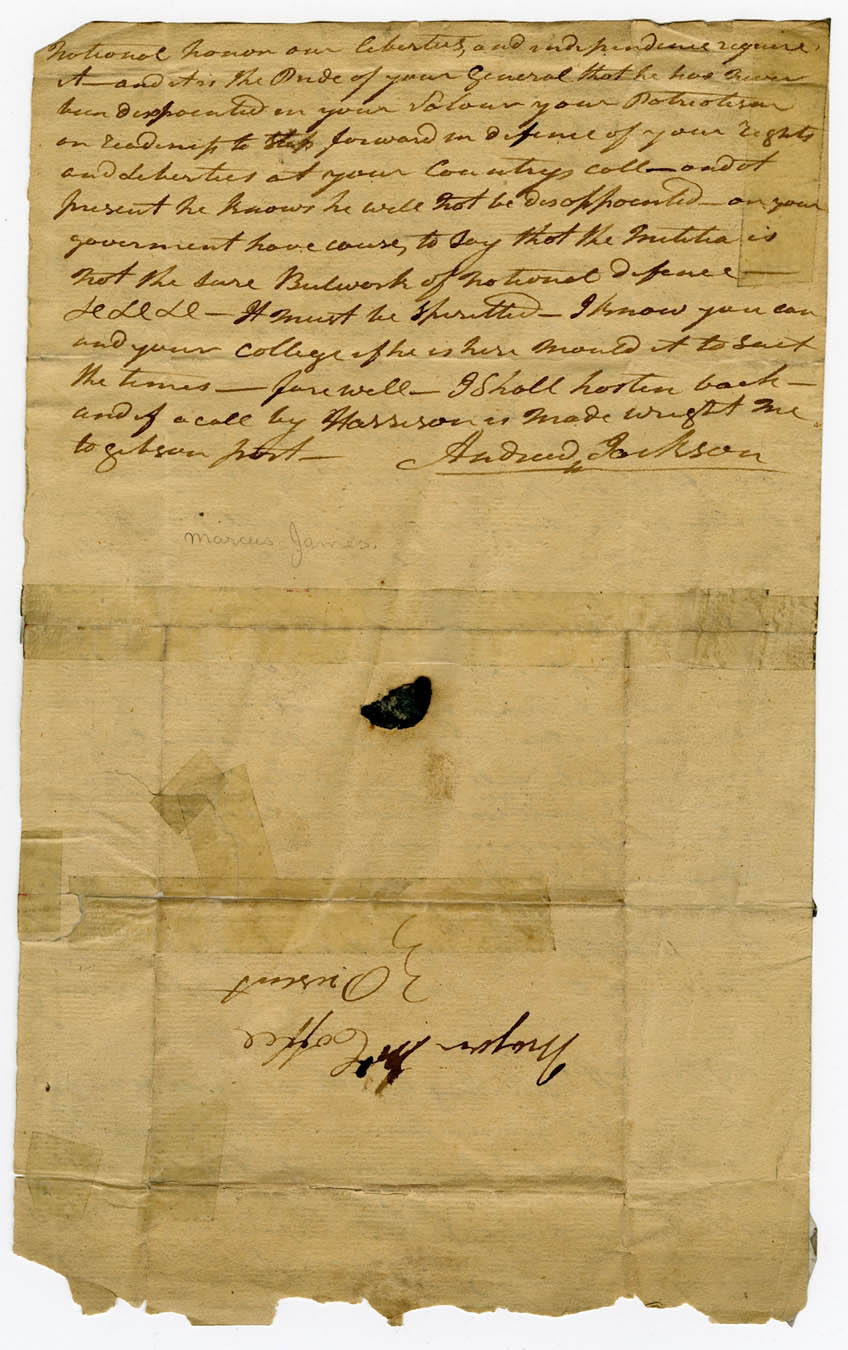 national honor our liberties, and independence require
it — and it is the Pride of your General that he has never
been disapointed in your Valour your Patriotism
or readiness to step forward in defence of your rights
and Liberties at your Countrys call — and at
present he knows he will not be disappointed — or your
goverment have cause, to say that the militia is
not the sure Bulwork of national defence —
&c &c &c — It must be Spiritted — I know you can
and your College if he is here mould it to suit
the times — farewell — I Shall hasten back —
and if a call by Harrison is made wright me
to gibson port —
Andrew Jackson
marcus James.
Major Coffee
Present